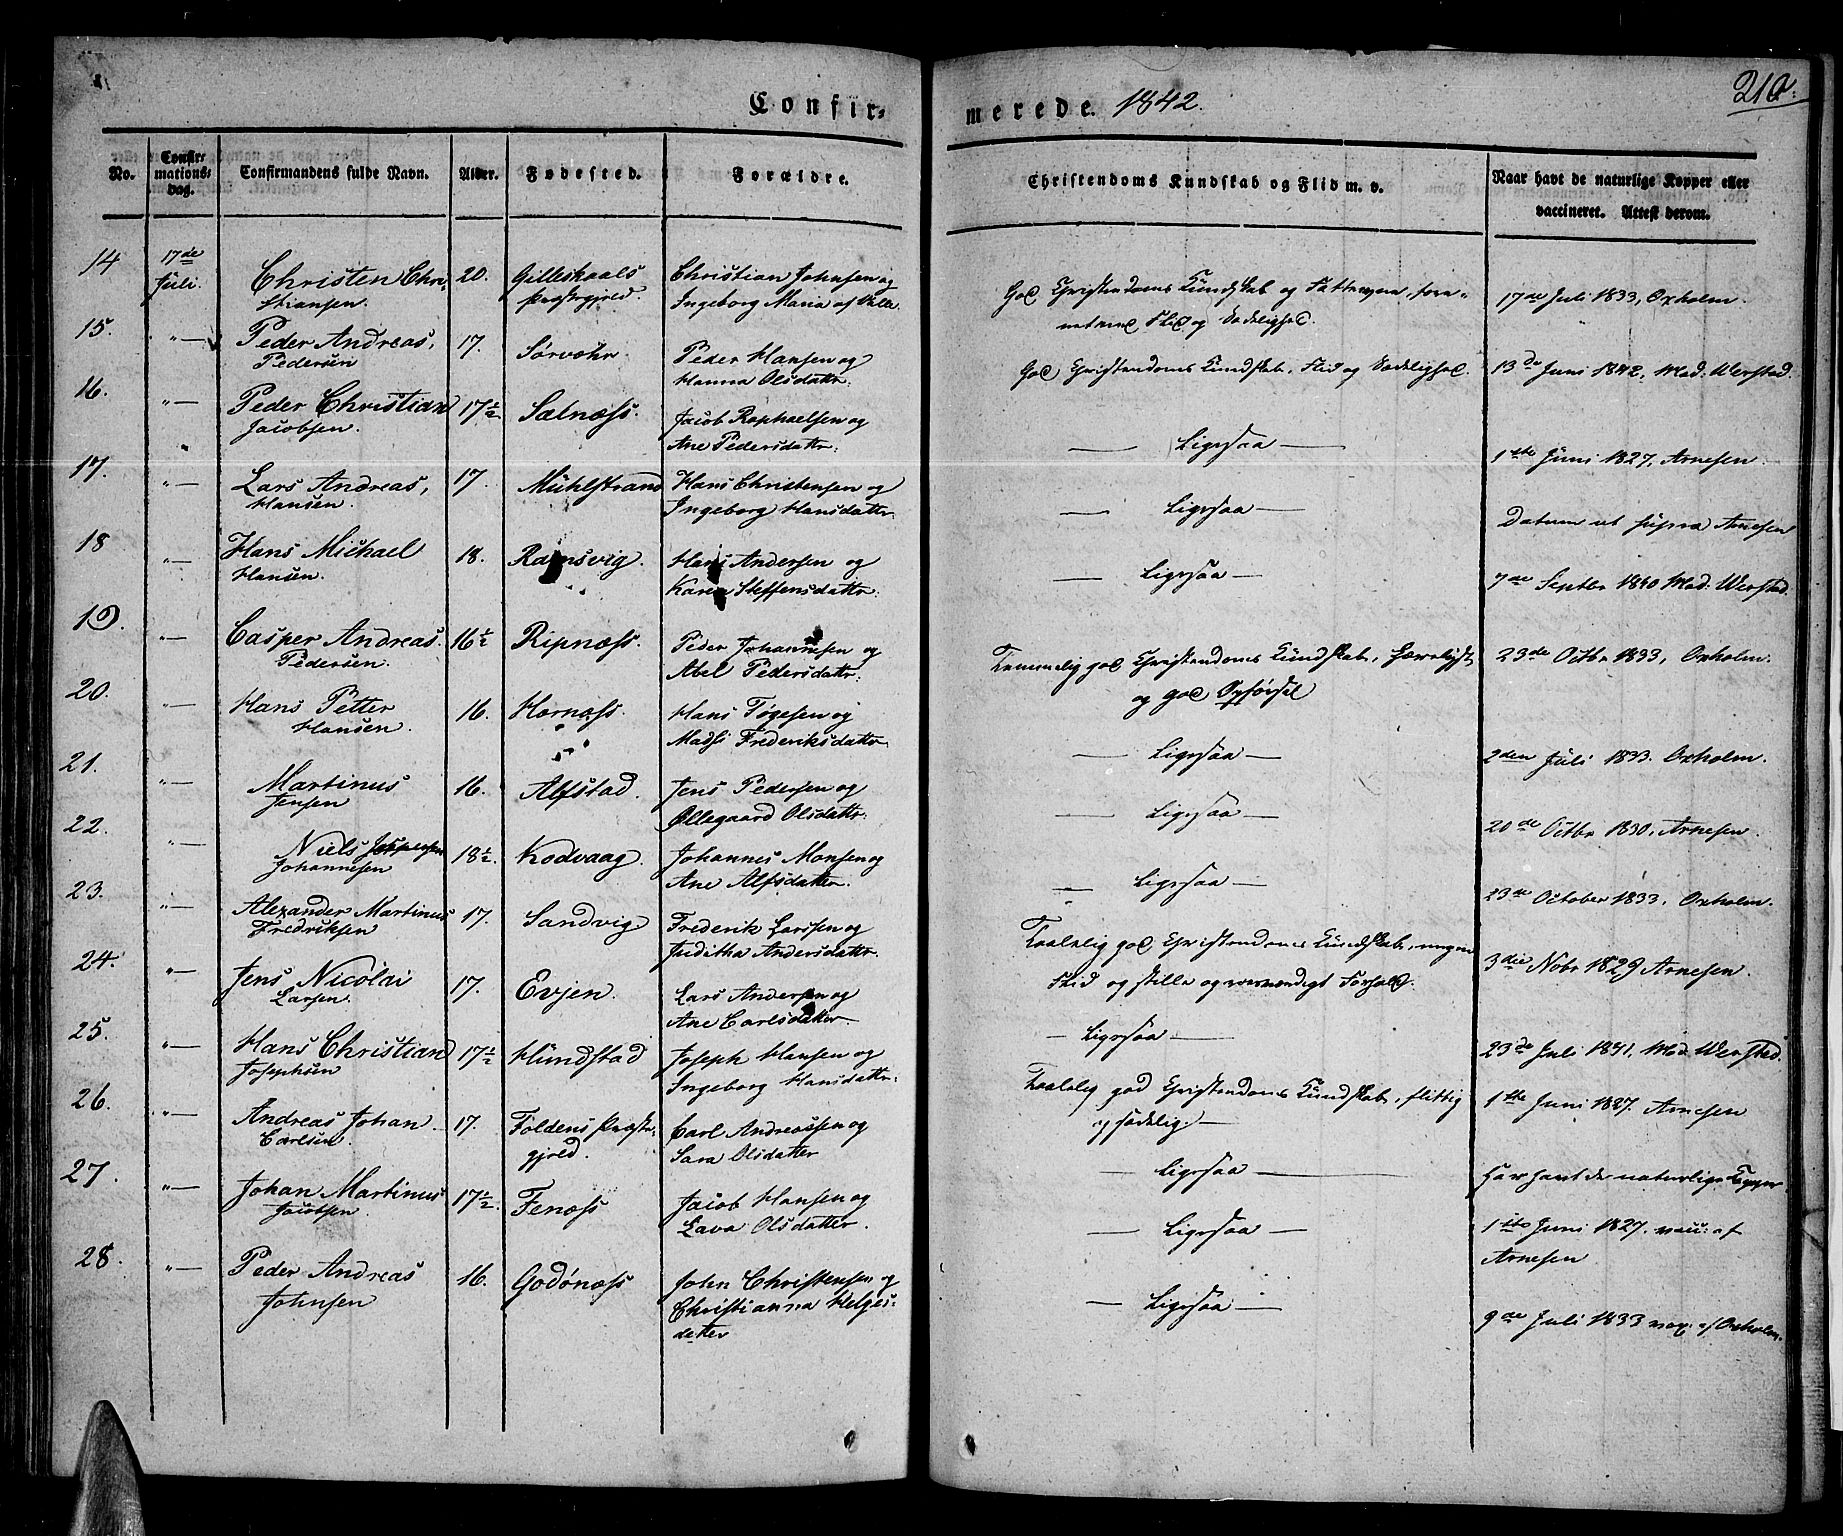 Confirmerede. 1842.
210.
No.
Confirmationsdag.
Confirmandens fulde Navn.
Alder.
Fødested.
Forældre.
Christendoms Kundskab og Flid m. v.
Naar havt de naturlige Kopper eller vaccineret. Attest derom.
14 17de Juli. Christen Chri- 20. Gilleskaals Christian Johnsen og God Christendoms Kundskab og
stiansen. Præstegjeld. Ingeborg Maria af Valle 17de Juli 1833, Oxholm.
15. "— Peder Andreas, 17. Sørvøhr. Peder Hansen og God Christendoms Kundskab, Flid og Sædelighed. 13de Juni 1842, Mad: Werstad.
Pedersen Hanna Olsdattr.
16. "— Peder Christian 17½ Sætnæss. Jacob Raphaelsen og — Ligesaa — 1ste Juni 1827, Arnesen.
Jacobsen. Ane Pedersdattr.
17. "— Lars Andreas, 17. Mühlstrand Hans Christensen og — Ligesaa — Datum ut supra Arnesen
Hansen Ingeborg Hansdattr.
18 "— Hans Michael 18. Ramsvig. Hans Andersen og — Ligesaa — 7de Septbr 1840 Mad: Werstad.
Hansen. Karen Steffensdattr.
19. "— Casper Andreas. 16½ Ripnæss. Peder Johannesen og Temmelig god Christendoms Kundskab, 23de Octbr 1833, Oxholm.
Pedersen Abel Pedersdattr. og god Opførsel
20. "— Hans Petter 16. Hernæss. Hans Tøgesen og — Ligesaa — 2den Juli 1833. Oxholm.
Hansen. Madsi Frederiksdattr.
21. "— Martinus 16. Alfstad. Jens Pedersen og — Ligesaa — 20de Octbr 1830, Arnesen.
Jensen Øllegaard Olsdattr.
22. "— Niels 18½. Kodvaag. Johannes Monsen og — Ligesaa — 23de October 1833, Oxholm.
Johannesen Ane Alfsdatter.
23. "— Alexander Martinus 17. Sandvig Frederik Larssen og Taalelig god Christendoms Kundskab, megen 3die Nobr 1829 Arnesen.
Fredriksen Juditha Andersdattr. Flid og stille og Forhold.
24. "— Jens Nicolai 17. Evjen. Lars Andersen og — Ligesaa — 23de Juli 1841, Md. Werstad.
Larsen. Ane Carlsdatter.
25. "— Hans Christian 17½ Hundstad Joseph Hansen og Taalelig god Christendoms Kundskab, flittig 1ste Juni 1827. Arnesen
Josephsen Ingeborg Hansdattr. og sædelig. —
26. "— Andreas Johan 17. Foldens Præste- Carl Andreassen og — Ligesaa — Har havt de naturlige Kopper
Carlsen. gjeld. Sara Olsdatter
27. "— Johan Martinus 17½. Fenæss Jacob Hansen og — Ligesaa — 1ste Juni 1827. vacc: af
Jacobsen. Lava Olsdatter. Arnesen
28. "— Peder Andreas 16. Godønæss John Christensen og — Ligesaa — 9de Juli 1833 vax: af Oxholm.
Johnsen Christianna Helges-
datter